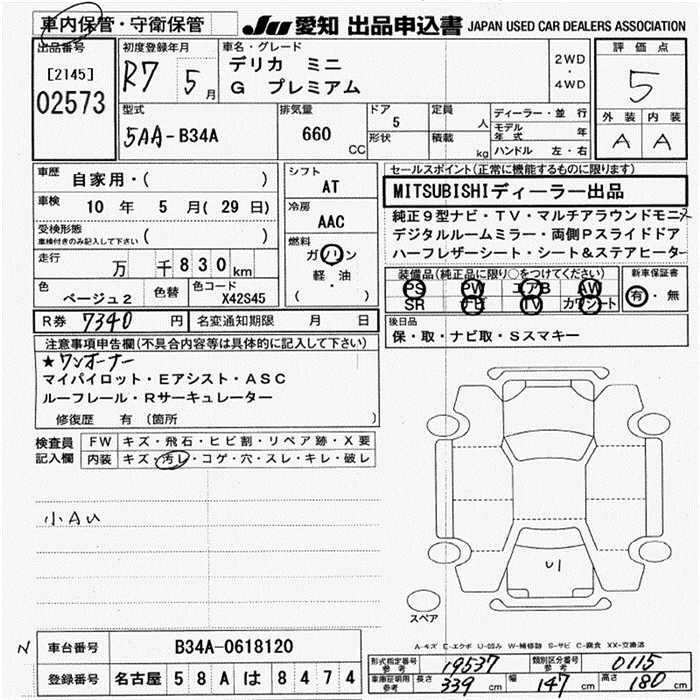 車内保管・守衛保管
JU 愛知 出品申込書 JAPAN USED CAR DEALERS ASSOCIATION
出品番号
[2145]
02573
初度登録年月
R7 5月
車名・グレード
デリカ ミニ
G プレミアム
2WD
・
4WD
評価点
5
外装 内装
A A
型式
5AA-B34A
排気量
660 CC
ドア
5
形状
定員
人
積載
kg
ディーラー・並行
モデル年式 年
ハンドル 左・右
車歴
自家用・( )
車検
10 年 5 月( 29 日)
受検形態
車検付きのみ記入して下さい ( )
走行
万 千830km
色
ベージュ2
色替
色コード
X42S45
シフト
AT
冷房
AAC
燃料
ガソリン
軽・油
( )
R券 7340 円
名変通知期限 月 日
セールスポイント(正常に機能するものに限ります)
MITSUBISHIディーラー出品
純正9型ナビ・TV・マルチアラウンドモニタ
デジタルルームミラー・両側Pスライドドア
ハーフレザーシート・シート&ステアヒーター
装備品(純正品に限り○をつけてください)
PS PW エアB AW
SR ナビ TV カワシート
新車保証書
有・無
後日品
保・取・ナビ取・Sスマキー
注意事項申告欄(不具合内容等は具体的に記入して下さい)
★ワンオーナー
マイパイロット・Eアシスト・ASC
ルーフレール・Rサーキュレーター
修復歴 有(箇所 )
検査員記入欄
FW キズ・飛石・ヒビ割・リペア跡・X要
内装 キズ・汚レ・コゲ・穴・スレ・キレ・破レ
小AU
U1
スペア
A-キズ E-エクボ U-凹み W-補修跡 S-サビ C-腐食 XX-交換済
N
車台番号 B34A-0618120
登録番号 名古屋 58A は 8474
形式指定番号 参考 19537
類別区分番号 参考 0115
車庫証明用 参考 長さ 339 cm 幅 147 cm 高さ 180 cm